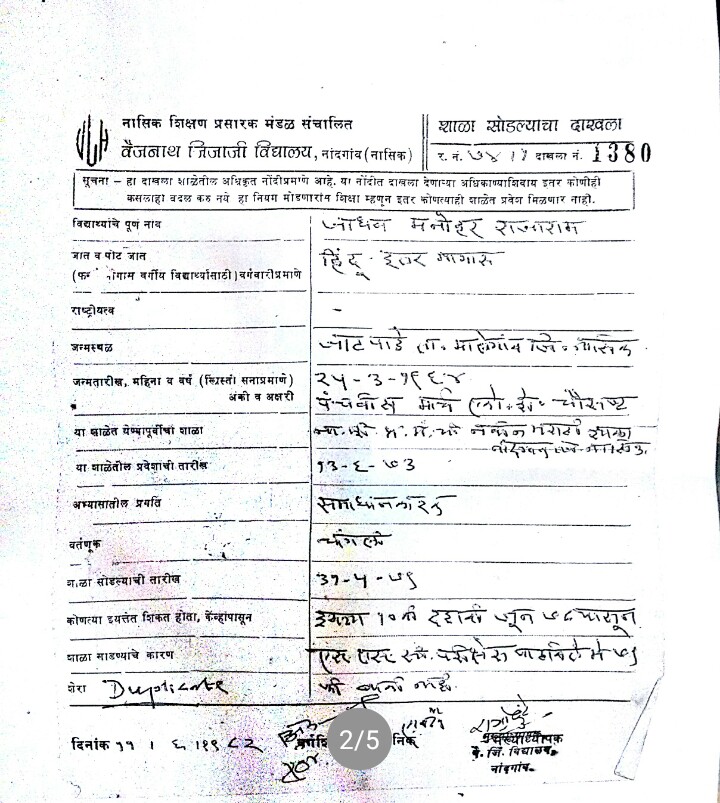 नासिक शिक्षण प्रसारक मंडळ संचालित
वैजनाथ जिजाजी विद्यालय, नांदगांव (नासिक)
शाळा सोडल्याचा दाखला
र. नं. ७४११ दाखला नं. 1380
सूचना – हा दाखला शाळेतील अधिकृत नोंदीप्रमाणे आहे. या नोंदीत दाखला देणाऱ्या अधिकाऱ्याशिवाय इतर कोणीही
कसलाहा बदल करु नये हा नियम मोडणारांस शिक्षा म्हणून इतर कोणत्याही शाळेत प्रवेश मिळणार नाही.
विद्यार्थ्यांचे पूर्ण नाव जाधव मनोहर राजाराम
जात व पोट जात हिंदू - इतर मागास
वर्गीय विद्यार्थ्यासाठी) वर्गवारीप्रमाणे
राष्ट्रीयत्व -
जन्मस्थळ जाटपाडे ता. मालेगांव जि. नासिक
जन्मतारीख, महिना व वर्ष (ख्रिस्ती सनाप्रमाणे) २५-३-१९६४
अंकी व अक्षरी पंचवीस मार्च चौसष्ट
या शाळेत येण्यापूर्वीची शाळा
या शाळेतील प्रवेशाची तारीख १३-६-७३
अभ्यासातील प्रगति समाधानकारक
वर्तणूक चांगली
शाळा सोडल्याची तारीख ३१-५-७९
कोणत्या इयत्तेत शिकत होता, केंव्हांपासून इयत्ता १० वी दहावी जून ७८ पासून
शाळा सोडण्याचे कारण एस. एस. सी. परीक्षेस मार्च ७९
शेरा Duplicate
दिनांक ११ । ६ १९८२
2/5
निक
मुख्याध्यापक
वै. जि. विद्यालय,
नांदगांव.